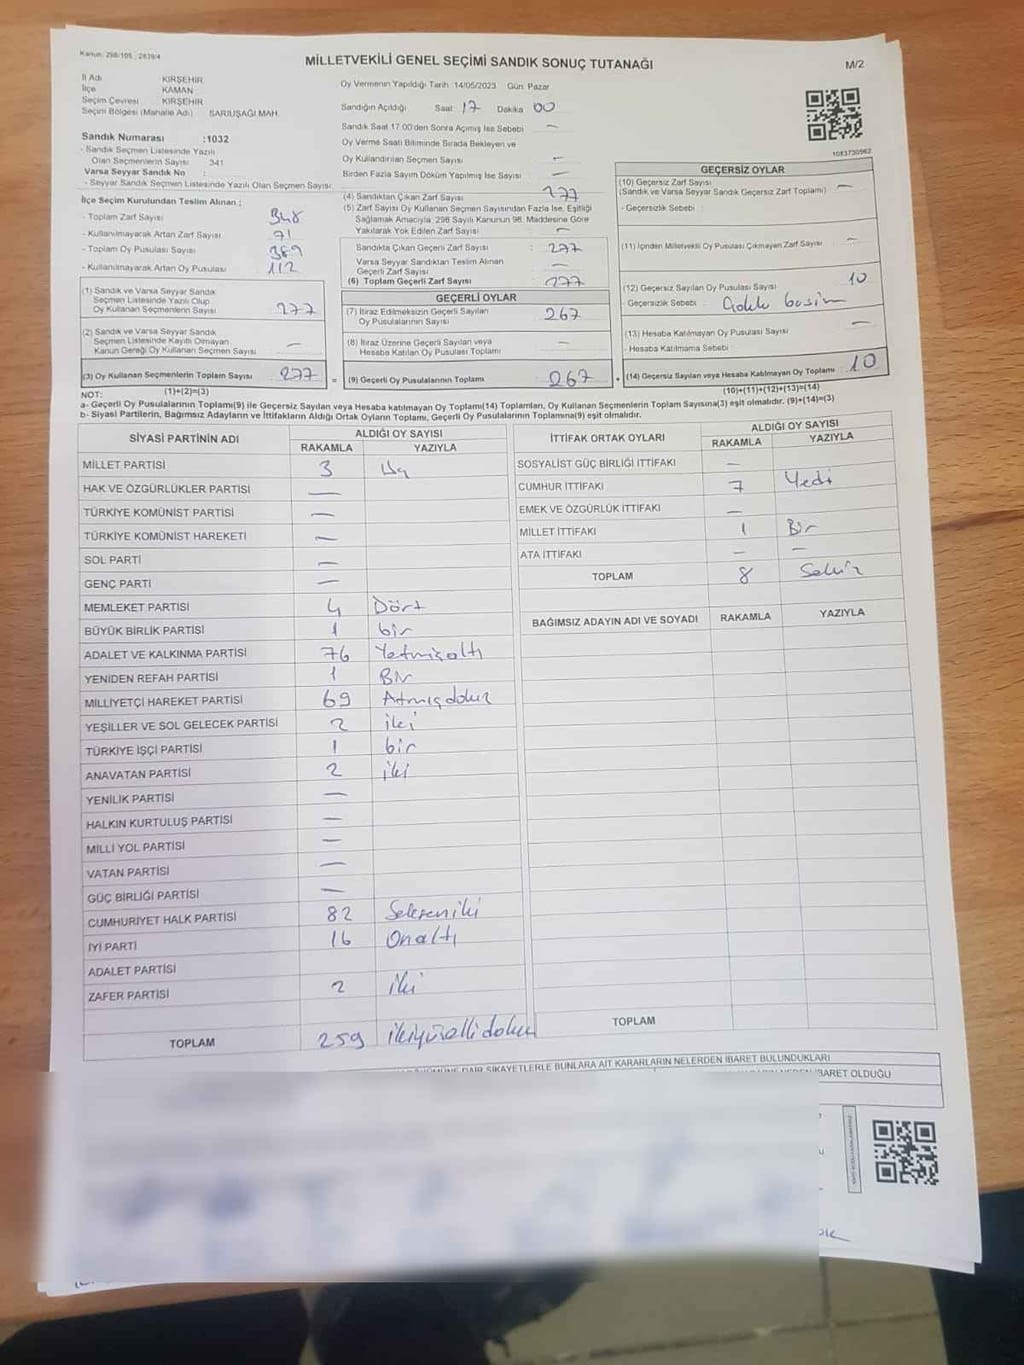 Kanun: 298/105 , 2839/4
MİLLETVEKİLİ GENEL SEÇİMİ SANDIK SONUÇ TUTANAĞI
M/2
İl Adı KIRŞEHİR
İlçe KAMAN
Seçim Çevresi KIRŞEHİR
Seçim Bölgesi (Mahalle Adı) SARIUŞAĞI MAH.
Sandık Numarası :1032
- Sandık Seçmen Listesinde Yazılı
Olan Seçmenlerin Sayısı 341
Varsa Seyyar Sandık No :
- Seyyar Sandık Seçmen Listesinde Yazılı Olan Seçmen Sayısı:
İlçe Seçim Kurulundan Teslim Alınan ;
- Toplam Zarf Sayısı 348
- Kullanılmayarak Artan Zarf Sayısı 71
- Toplam Oy Pusulası Sayısı 389
- Kullanılmayarak Artan Oy Pusulası 112
(1) Sandık ve Varsa Seyyar Sandık
Seçmen Listesinde Yazılı Olup
Oy Kullanan Seçmenlerin Sayısı 277
(2) Sandık ve Varsa Seyyar Sandık
Seçmen Listesinde Kayıtlı Olmayan
Kanun Gereği Oy Kullanan Seçmen Sayısı —
(3) Oy Kullanan Seçmenlerin Toplam Sayısı 277
(1)+(2)=(3)
Oy Vermenin Yapıldığı Tarih :14/05/2023 Gün: Pazar
Sandığın Açıldığı Saat 17 Dakika 00
Sandık Saat 17:00'den Sonra Açımış İse Sebebi —
Oy Verme Saati Bitiminde Sırada Bekleyen ve
Oy Kullandırılan Seçmen Sayısı —
Birden Fazla Sayım Döküm Yapılmış İse Sayısı —
(4) Sandıktan Çıkan Zarf Sayısı 277
(5) Zarf Sayısı Oy Kullanan Seçmen Sayısından Fazla İse, Eşitliği
Sağlamak Amacıyla, 298 Sayılı Kanunun 98. Maddesine Göre
Yakılarak Yok Edilen Zarf Sayısı —
Sandıkta Çıkan Geçerli Zarf Sayısı : 277
Varsa Seyyar Sandıktan Teslim Alınan
Geçerli Zarf Sayısı —
(6) Toplam Geçerli Zarf Sayısı 277
GEÇERLİ OYLAR
(7) İtiraz Edilmeksizin Geçerli Sayılan
Oy Pusulalarının Sayısı 267
(8) İtiraz Üzerine Geçerli Sayılan veya
Hesaba Katılan Oy Pusulası Toplamı —
= (9) Geçerli Oy Pusulalarının Toplamı 267
1083730962
GEÇERSİZ OYLAR
(10) Geçersiz Zarf Sayısı
(Sandık ve Varsa Seyyar Sandık Geçersiz Zarf Toplamı) —
- Geçersizlik Sebebi :
(11) İçinden Milletvekili Oy Pusulası Çıkmayan Zarf Sayısı —
(12) Geçersiz Sayılan Oy Pusulası Sayısı 10
- Geçersizlik Sebebi :
(13) Hesaba Katılmayan Oy Pusulası Sayısı —
- Hesaba Katılmama Sebebi :
+ (14) Geçersiz Sayılan veya Hesaba Katılmayan Oy Toplamı 10
(10)+(11)+(12)+(13)=(14)
NOT:
a- Geçerli Oy Pusulalarının Toplamı(9) ile Geçersiz Sayılan veya Hesaba katılmayan Oy Toplamı(14) Toplamları, Oy Kullanan Seçmenlerin Toplam Sayısına(3) eşit olmalıdır. (9)+(14)=(3)
b- Siyasi Partilerin, Bağımsız Adayların ve İttifakların Aldığı Ortak Oyların Toplamı, Geçerli Oy Pusulalarının Toplamına(9) eşit olmalıdır.
SİYASİ PARTİNİN ADI ALDIĞI OY SAYISI
RAKAMLA YAZIYLA
MİLLET PARTİSİ 3 Üç
HAK VE ÖZGÜRLÜKLER PARTİSİ —
TÜRKİYE KOMÜNİST PARTİSİ —
TÜRKİYE KOMÜNİST HAREKETİ —
SOL PARTİ —
GENÇ PARTİ —
MEMLEKET PARTİSİ 4 Dört
BÜYÜK BİRLİK PARTİSİ 1 bir
ADALET VE KALKINMA PARTİSİ 76 Yetmişaltı
YENİDEN REFAH PARTİSİ 1 Bir
MİLLİYETÇİ HAREKET PARTİSİ 69 Atmışdokuz
YEŞİLLER VE SOL GELECEK PARTİSİ 2 iki
TÜRKİYE İŞÇİ PARTİSİ 1 bir
ANAVATAN PARTİSİ 2 iki
YENİLİK PARTİSİ —
HALKIN KURTULUŞ PARTİSİ —
MİLLİ YOL PARTİSİ —
VATAN PARTİSİ —
GÜÇ BİRLİĞİ PARTİSİ —
CUMHURİYET HALK PARTİSİ 82 Sekseniki
İYİ PARTİ 16 Onaltı
ADALET PARTİSİ
ZAFER PARTİSİ 2 iki
TOPLAM 259 ikiyüzellidokuz
İTTİFAK ORTAK OYLARI ALDIĞI OY SAYISI
RAKAMLA YAZIYLA
SOSYALİST GÜÇ BİRLİĞİ İTTİFAKI —
CUMHUR İTTİFAKI 7 Yedi
EMEK VE ÖZGÜRLÜK İTTİFAKI —
MİLLET İTTİFAKI 1 Bir
ATA İTTİFAKI — —
TOPLAM 8 Sekiz
BAĞIMSIZ ADAYIN ADI VE SOYADI RAKAMLA YAZIYLA
TOPLAM
DAİR ŞİKAYETLERLE BUNLARA AİT KARARLARIN NELERDEN İBARET BULUNDUKLARI
İBARET OLDUĞU